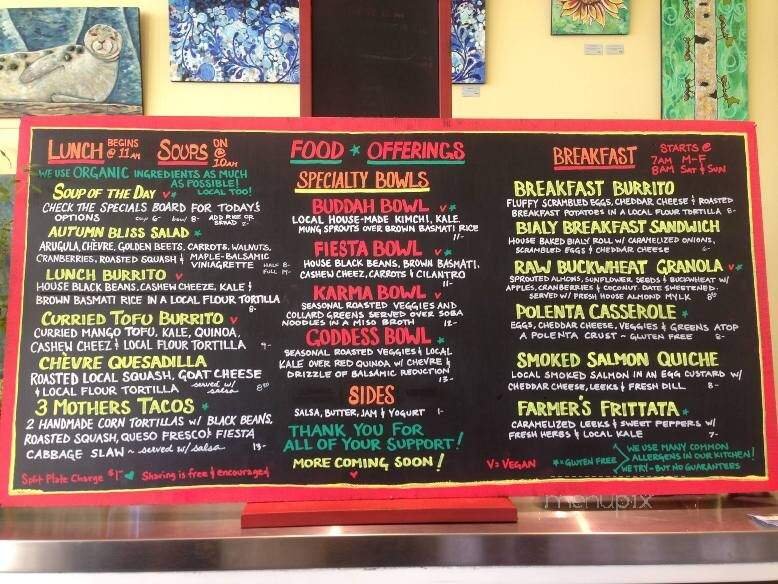 LUNCH BEGINS @ 11AM SOUPS ON @ 10AM
WE USE ORGANIC INGREDIENTS AS MUCH
AS POSSIBLE!
LOCAL TOO!
SOUP OF THE DAY V*
CHECK THE SPECIALS BOARD FOR TODAY'S
OPTIONS CUP 6- BOWL 8- ADD RICE OR BREAD 2-
AUTUMN BLISS SALAD *
ARUGULA, CHÈVRE, GOLDEN BEETS, CARROTS, WALNUTS,
CRANBERRIES, ROASTED SQUASH & MAPLE-BALSAMIC
VINAIGRETTE HALF 8- FULL 14-
LUNCH BURRITO V
HOUSE BLACK BEANS, CASHEW CHEEZE, KALE &
BROWN BASMATI RICE IN A LOCAL FLOUR TORTILLA
8-
CURRIED TOFU BURRITO V
CURRIED MANGO TOFU, KALE, QUINOA,
CASHEW CHEEZ & LOCAL FLOUR TORTILLA 9-
CHÈVRE QUESADILLA
ROASTED LOCAL SQUASH, GOAT CHEESE
& LOCAL FLOUR TORTILLA served w/ salsa 8
3 MOTHERS TACOS *
2 HANDMADE CORN TORTILLAS W/ BLACK BEANS,
ROASTED SQUASH, QUESO FRESCO & FIESTA
CABBAGE SLAW ~ served w/ salsa 13-
Split Plate Charge $1- Sharing is free & encouraged
FOOD * OFFERINGS
SPECIALTY BOWLS
BUDDAH BOWL V*
LOCAL HOUSE-MADE KIMCHI, KALE,
MUNG SPROUTS OVER BROWN BASMATI RICE
11-
FIESTA BOWL V*
HOUSE BLACK BEANS, BROWN BASMATI,
CASHEW CHEEZ, CARROTS & CILANTRO
11-
KARMA BOWL V
SEASONAL ROASTED VEGGIES AND
COLLARD GREENS SERVED OVER SOBA
NOODLES IN A MISO BROTH 12-
GODDESS BOWL *
SEASONAL ROASTED VEGGIES & LOCAL
KALE OVER RED QUINOA W/ CHEVRE &
DRIZZLE OF BALSAMIC REDUCTION
13-
SIDES
SALSA, BUTTER, JAM & YOGURT 1-
THANK YOU FOR
ALL OF YOUR SUPPORT!
MORE COMING SOON!
BREAKFAST STARTS @
7AM M-F
8AM SAT & SUN
BREAKFAST BURRITO
FLUFFY SCRAMBLED EGGS, CHEDDAR CHEESE & ROASTED
BREAKFAST POTATOES IN A LOCAL FLOUR TORTILLA 8-
BIALY BREAKFAST SANDWICH
HOUSE BAKED BIALY ROLL W/ CARAMELIZED ONIONS,
SCRAMBLED EGGS & CHEDDAR CHEESE 6-
RAW BUCKWHEAT GRANOLA V*
SPROUTED ALMONDS, SUNFLOWER SEEDS & BUCKWHEAT W/
APPLES, CRANBERRIES & COCONUT. DATE SWEETENED.
SERVED W/ FRESH HOUSE ALMOND MYLK 8
POLENTA CASSEROLE *
EGGS, CHEDDAR CHEESE, VEGGIES & GREENS ATOP
A POLENTA CRUST ~ GLUTEN FREE 8-
SMOKED SALMON QUICHE
LOCAL SMOKED SALMON IN AN EGG CUSTARD W/
CHEDDAR CHEESE, LEEKS & FRESH DILL 8-
FARMER'S FRITTATA *
CARAMELIZED LEEKS & SWEET PEPPERS W/
FRESH HERBS & LOCAL KALE 7-
V=VEGAN *=GLUTEN FREE
WE USE MANY COMMON
ALLERGENS IN OUR KITCHEN!
WE TRY-BUT NO GUARANTEES
menupix